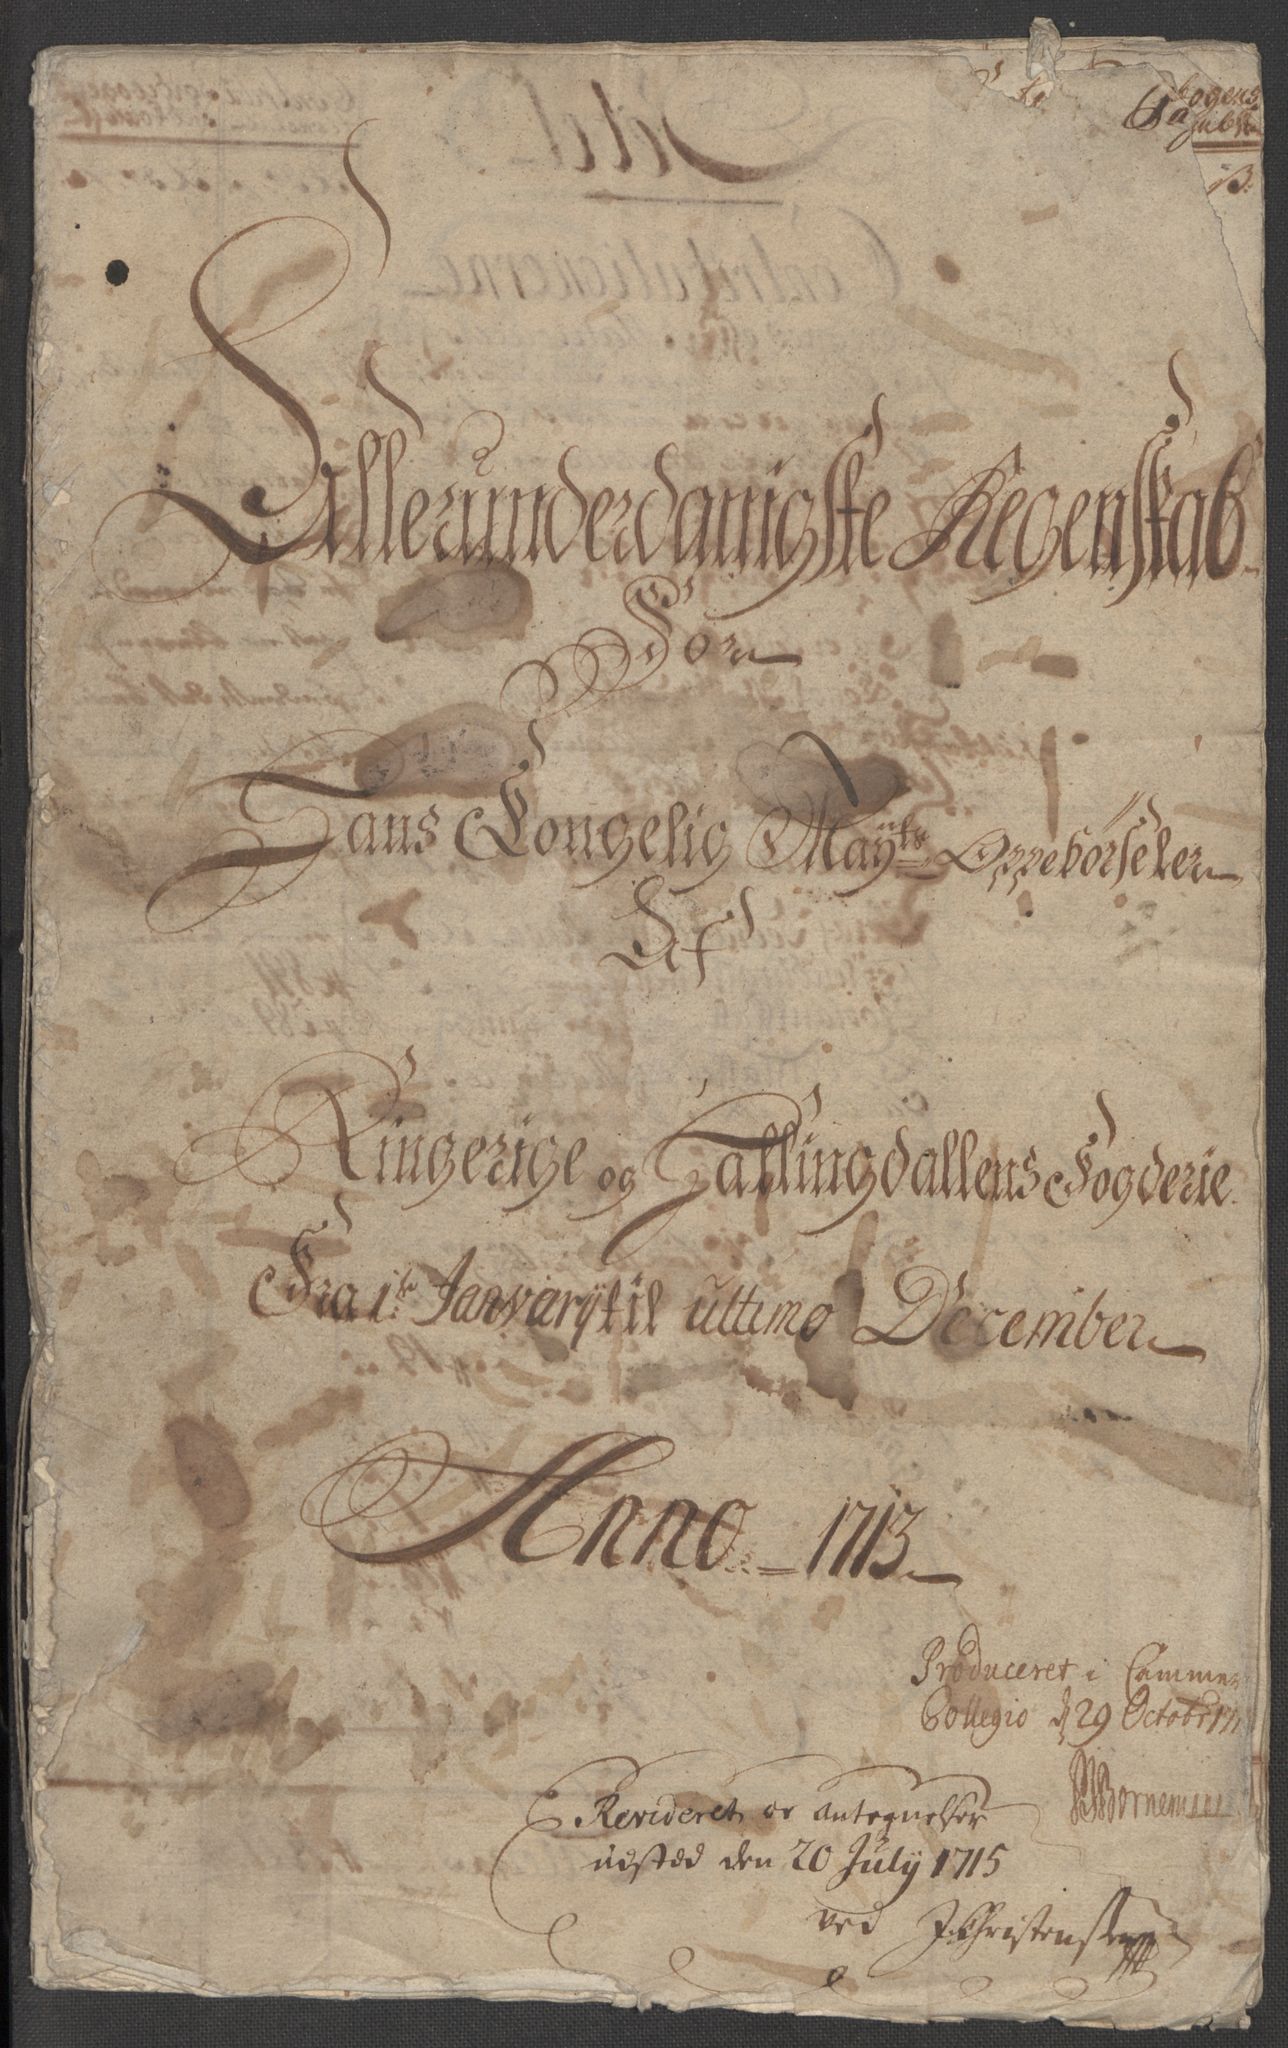 Allerunderdanigste Regenskab
For
Hans Kongelig Mayts Oppebørseler
Af
Ringerige og Hallingdallens Fogderie
Fra 1te Janvary til ultimo December
Anno 1713
Produceret i Cammer
Collegio d 29 Octobr 171
Bornemann
Revideret og antegnelser
udsted den 20 July 1715
ved J: Christensen